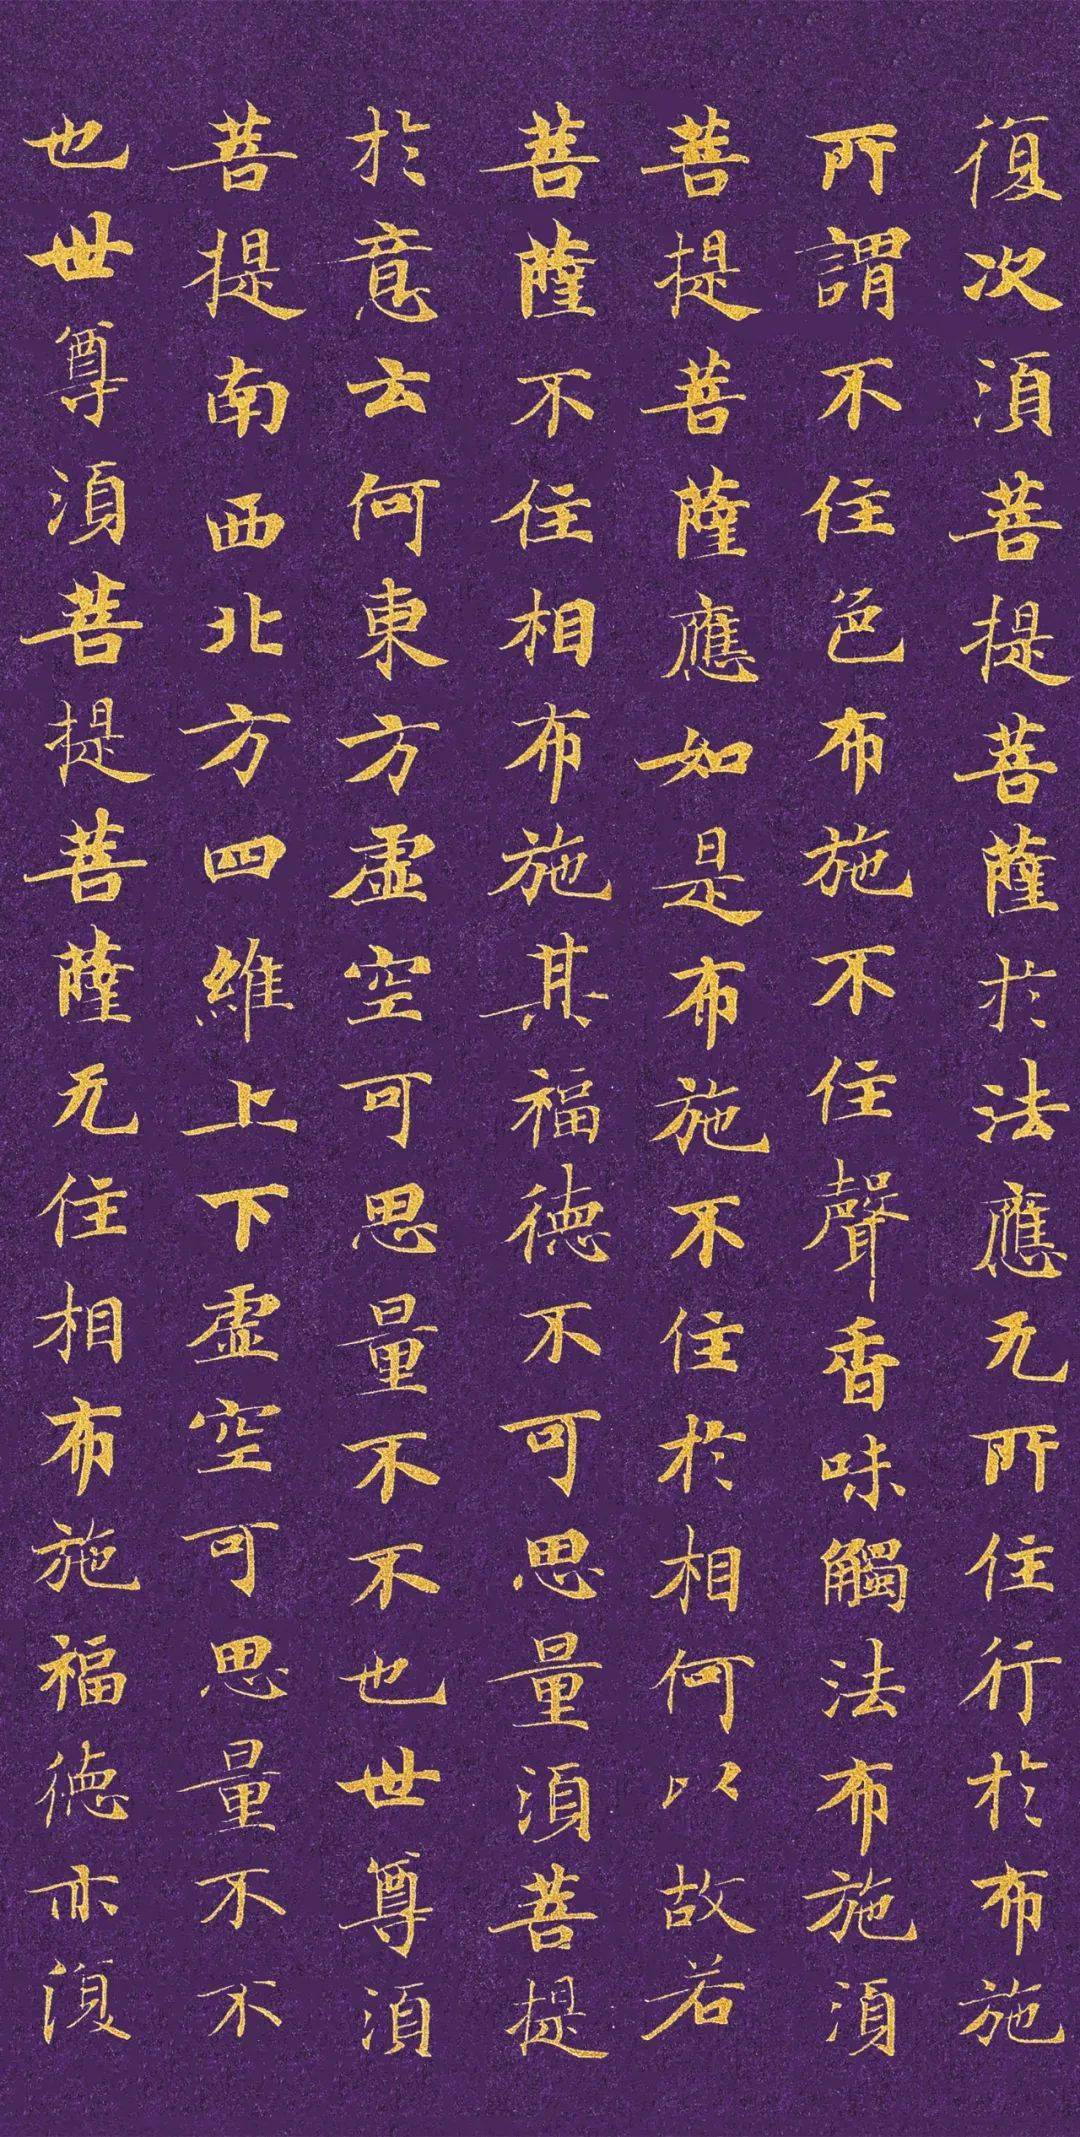 復次須菩提菩薩於法應无所住行於布施
所謂不住色布施不住聲香味觸法布施須
菩提菩薩應如是布施不住於相何以故若
菩薩不住相布施其福德不可思量須菩提
於意云何東方虛空可思量不不也世尊須
菩提南西北方四維上下虛空可思量不不
也世尊須菩提菩薩无住相布施福德亦復